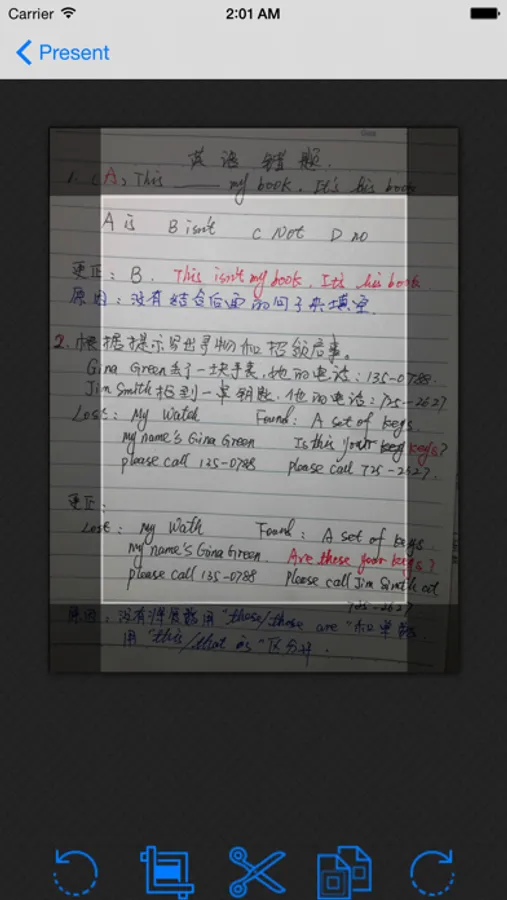 Carrier
2:01 AM
Present
英语错题.
1. (A) This ____ my book. It's his book
A is B isn't C Not D no
更正: B. This isn't my book. It's his book
原因: 没有结合后面的句子来填空.
2. 根据提示写出寻物和招领启事。
Gina Green丢了一块手表,她的电话: 135-0788.
Jim Smith捡到一串钥匙,他的电话: 725-2627
Lost: My Watch Found: A set of keys.
my name's Gina Green Is this your key keys?
please call 135-0788 please call 725-2627.
更正:
Lost: My Wath Found: A set of keys.
my name's Gina Green. Are these your keys?
please call 135-0788 please call Jim Simth at
725-2627
原因: 没有 "these/those are" 和单数
用 "this/that is" 区分开.